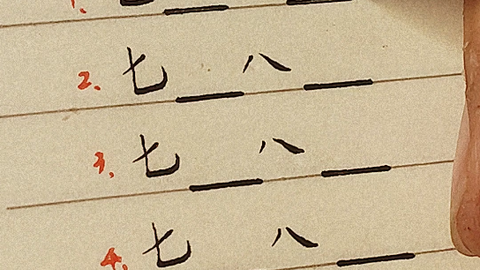 1. __ __
2. 七__八__
3. 七__八__
4. 七__八__